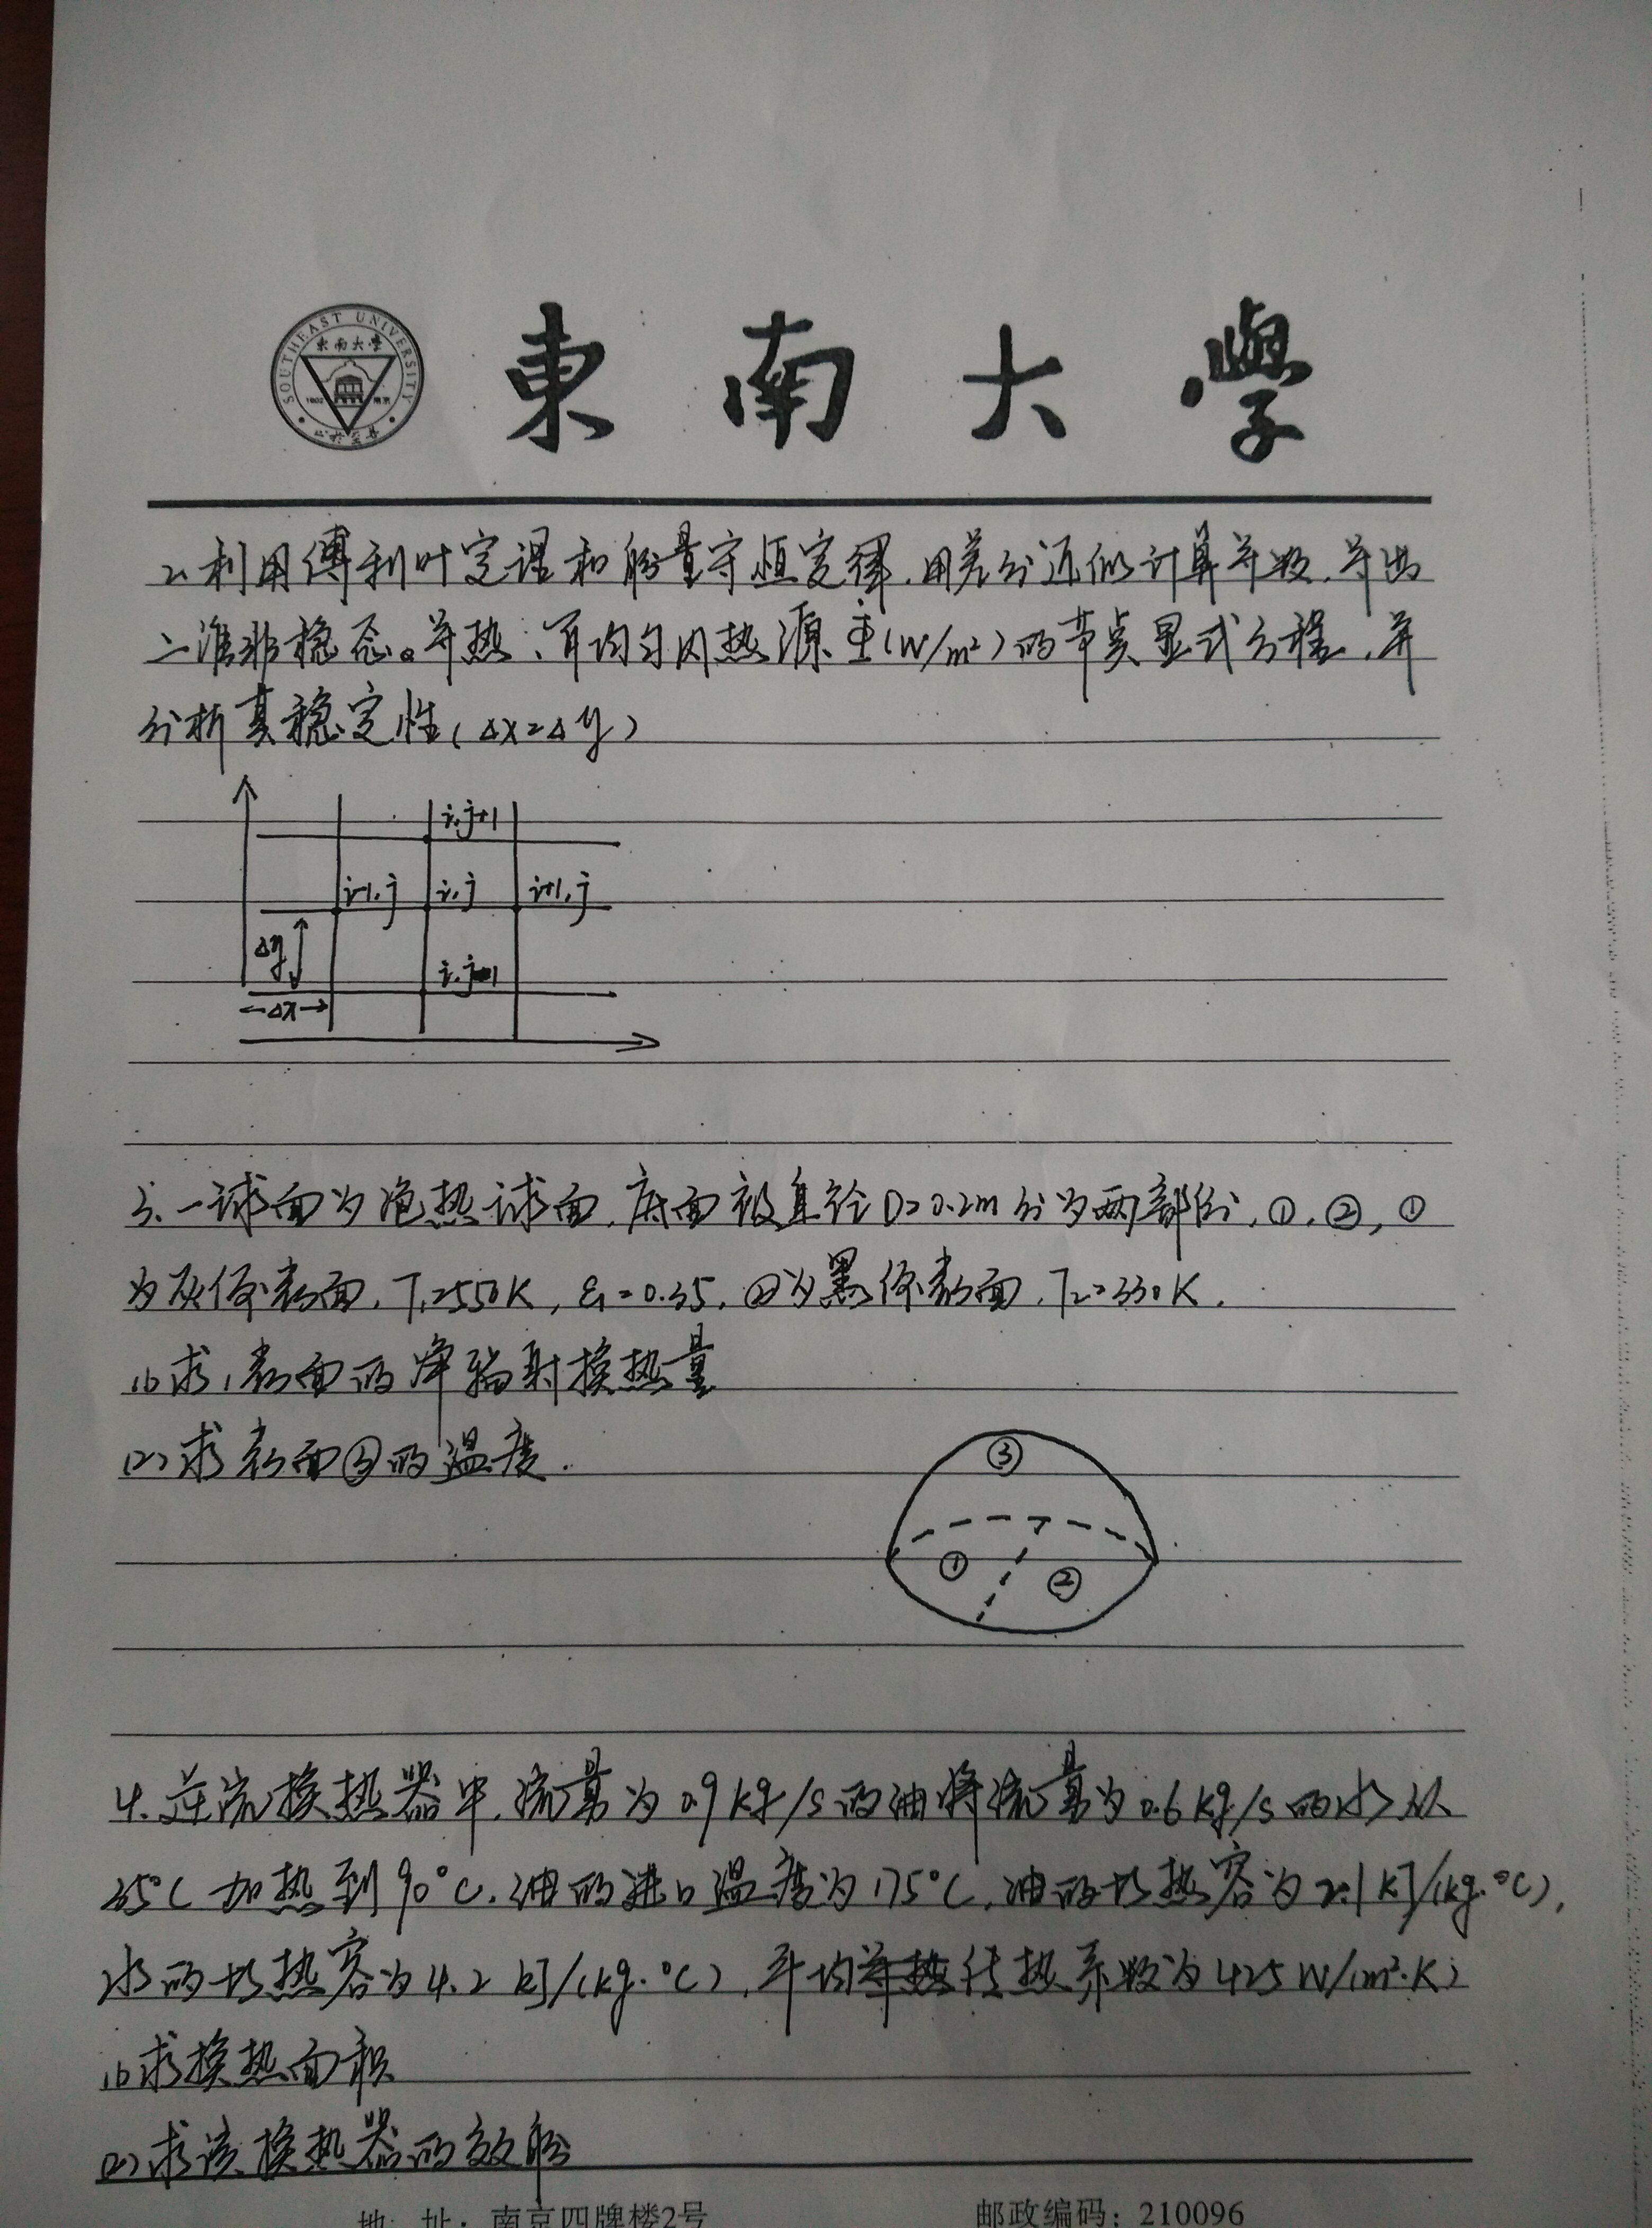 SOUTHEAST UNIVERSITY
東南大學
1902 南京
東南大學
2. 利用傅利叶定理和能量守恒定律,用差分近似计算导数,导出
二维非稳态。导热、有均匀内热源 Φ(W/m²)的节点显式方程,并
分析其稳定性(Δx=Δy)
i,j+1
i-1,j i,j i+1,j
Δy
i,j-1
Δx
3. 一球面为绝热球面,底面被直径D=0.2m分为两部分,①,②,①
为灰体表面,T₁=550K,ε₁=0.35,②为黑体表面,T₂=330K.
(1)求1表面的净辐射换热量
(2)求表面③的温度.
③
① ②
4. 逆流换热器中,流量为0.9kg/s的油将流量为0.6kg/s的水从
35℃加热到90℃.油的进口温度为175℃,油的比热容为2.1kJ/(kg·℃),
水的比热容为4.2kJ/(kg·℃),平均传热系数为425W/(m²·K)
(1)求换热面积
(2)求该换热器的效能
地 址:南京四牌楼2号 邮政编码:210096